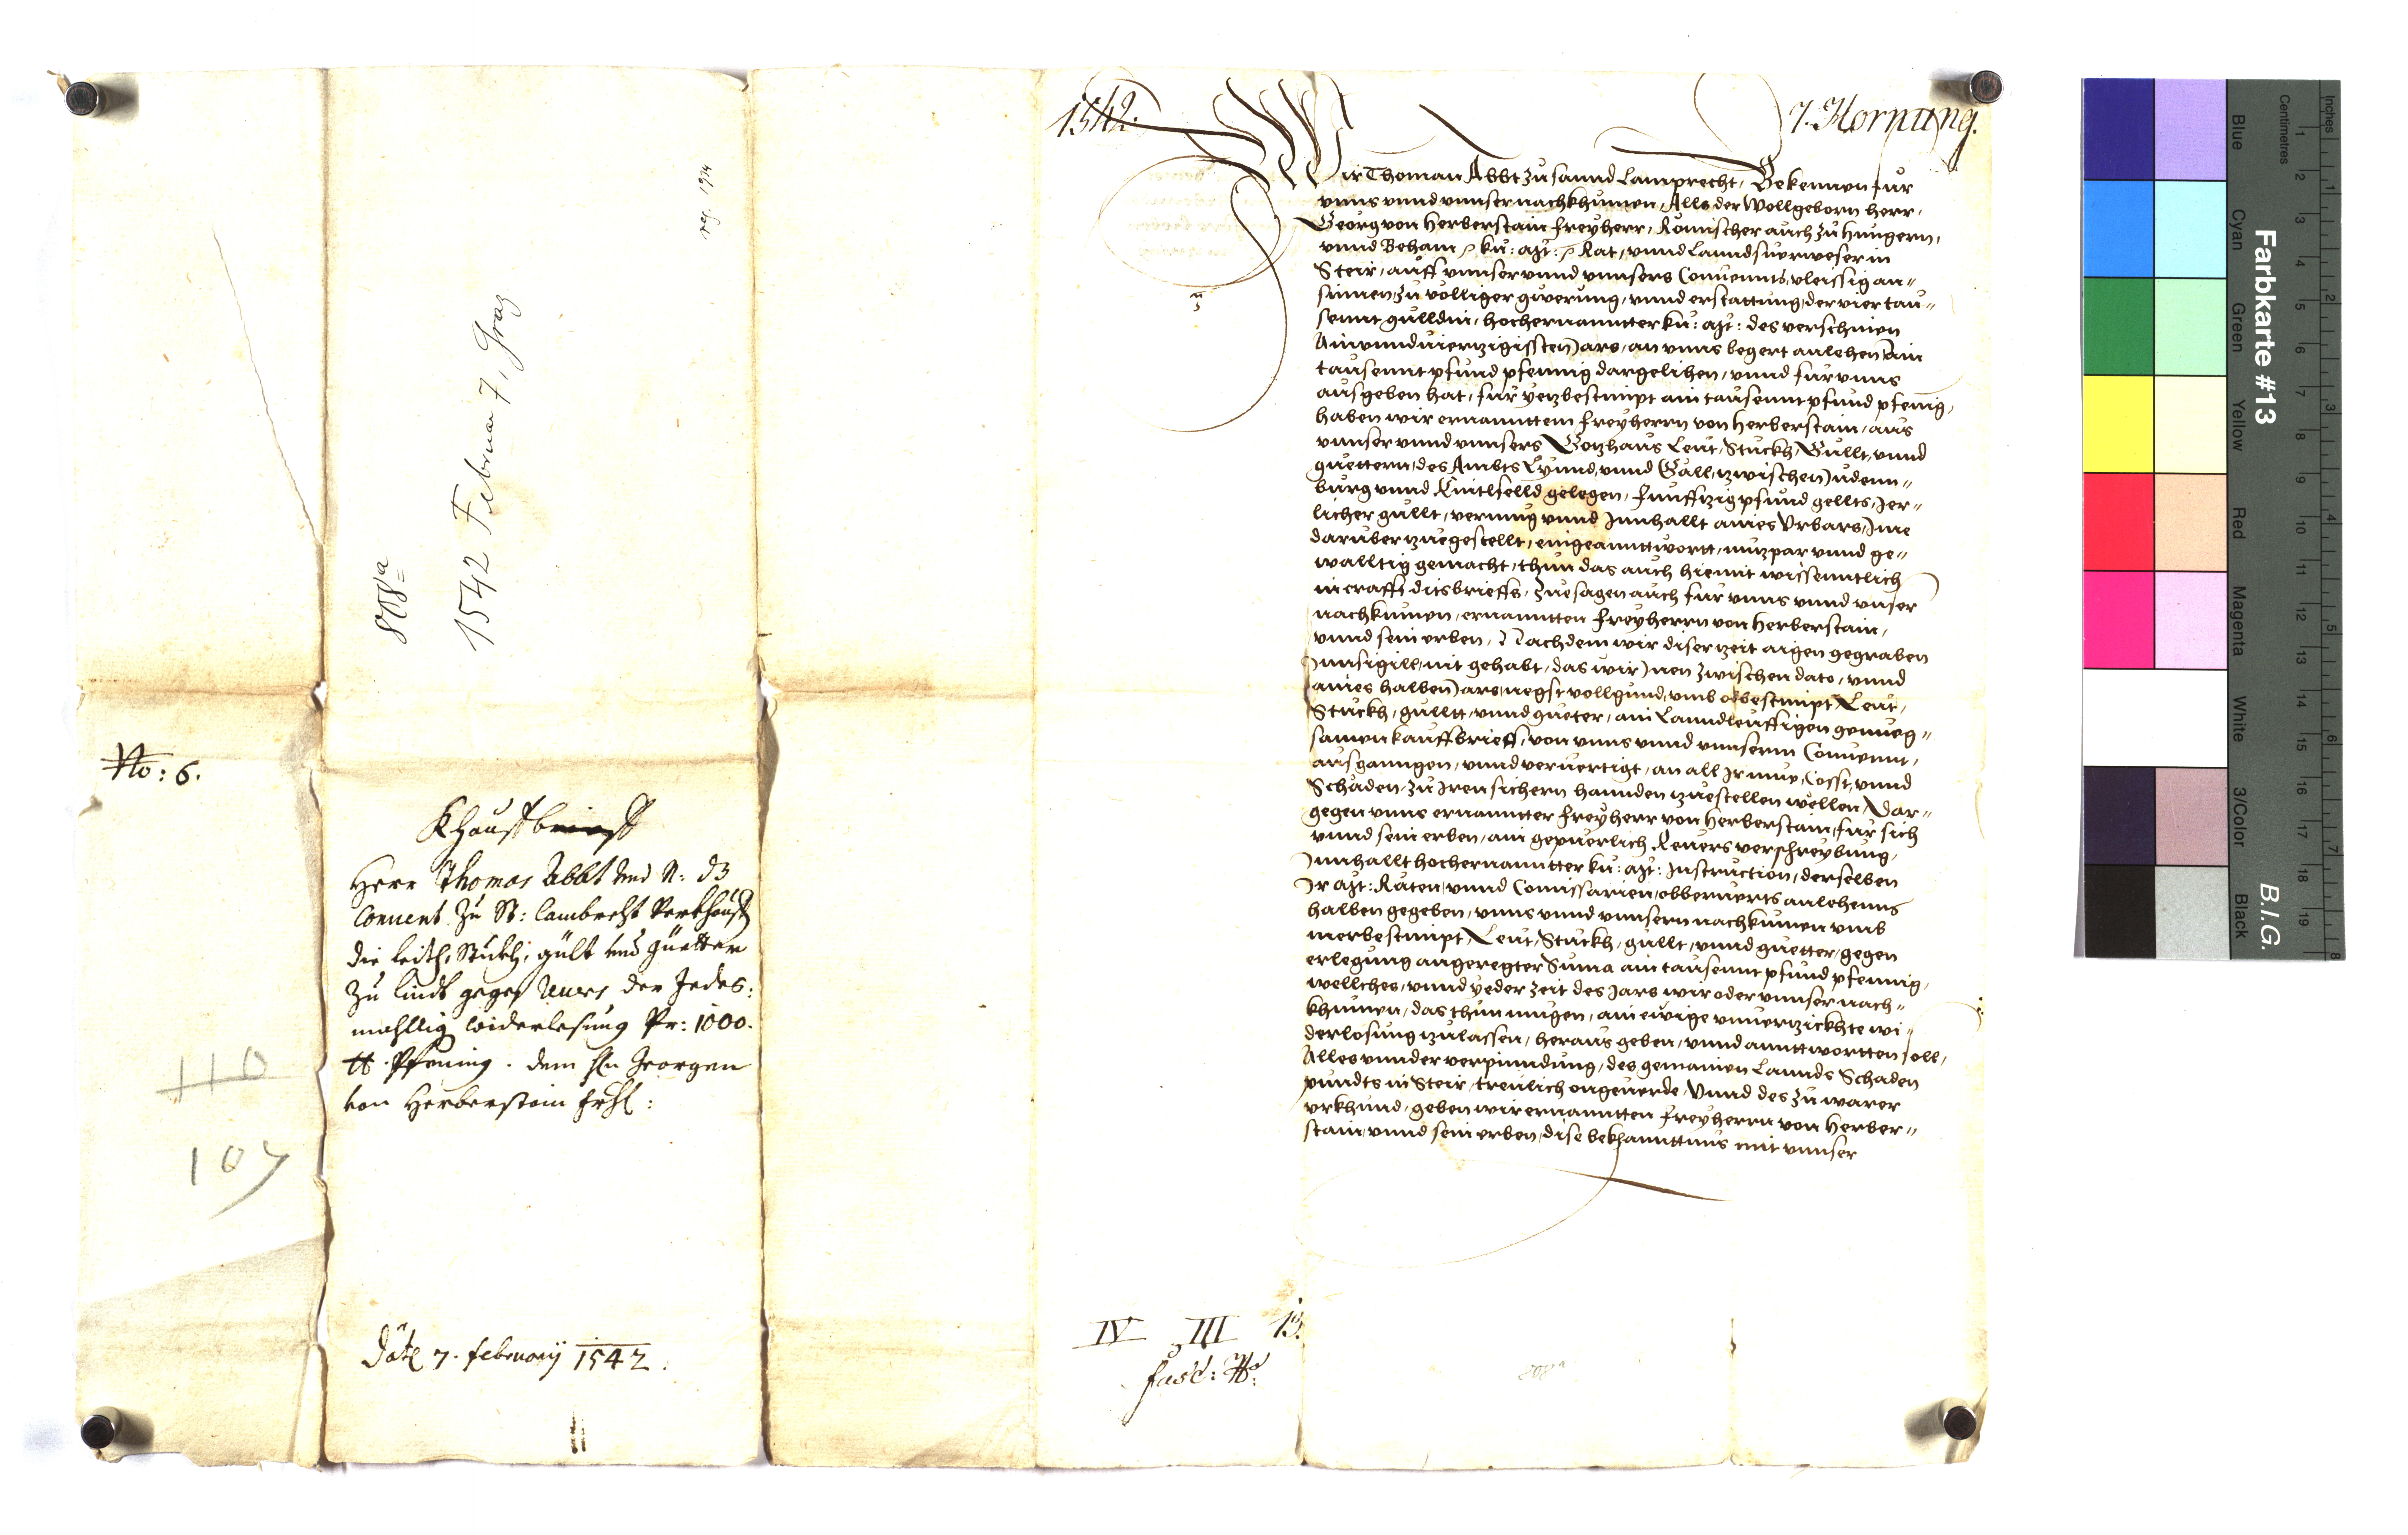 1542.
7. Hornung.
Wir Thoman Abbt zu sannd Lamprecht, Bekennen fur
vnns vnnd vnnser nachkhumen, Alls der Wollgeborn herr,
Georg von Herberstain freyherr, Römischer auch zu Hungern,
vnnd Beham ku: mt: Rat, vnnd Lanndsuerweser in
Steir, auff vnnser vnnd vnnsers Conuennts, vleissig an-
sinnen, zu völliger gwerung, vnnd erstattung, der vier tau-
sennt gulldin, hochernanntter ku: mt: des verschinen
Ainundvierzigissten Jars, an vnns begert anlehen, Ain
tausennt pfund pfennig dargelihen, vnnd fur vnns
ausgeben hat, fur yetzbestimpt ain tausennt pfund pfenig,
haben wir ernanntem freyherrn von Herberstain, aus
vnnser vnnd vnnsers Gotzhaus Leut, Stuckh, Gullt, vnnd
guettern, des Ambts Lynnd, vnnd Gäll, zwischen Judenn-
burg vnnd Knitlfelld gelegen, funffzig pfund gellts, Jer-
licher gullt, vermug vnnd Innhallt aines Vrbars, Ime
daruber zuegestellt, eingeanntwortt, nutzpar vnnd ge-
walltig gemacht, thun das auch hiemit wissenntlich
in crafft ditsbrieffs, Zuesagen auch fur vnns vnnd vnser
nachkumen, ernannten freyherrn von Herberstain,
vnnd sein erben, Nachdem wir diser zeit aigen gegraben
Innsigill nit gehabt, das wir Inen zwischen dato, vnnd
aines halben Jars, negst vollgund, vmb obbestimpt Leut,
Stuckh, gulltt, vnnd gueter, ain Lanndleuffigen genueg-
samen kauffbrieff, von vnns vnnd vnnserm Conuennt,
ausganngen, vnnd veruertigt, an all Ir mue, Cosst, vnnd
Schaden, zu Iren sichern hannden zuestellen wellen, Dar-
gegen vnns ernannter freyherr von Herberstain, fur sich
vnnd sein erben, ain gepuerlich Reuers verschreybung,
Innhallt hochernannter ku: mt: Instruction, derselben
Ir mt: Räten, vnnd Comissarien, obberuerts anlehenns
halben gegeben, vnns vnnd vnnsern nachkumen vmb
merbestimpt Leut, Stuckh, gullt, vnnd guetter, gegen
erlegung angeregter Suma ain tausennt pfund pfennig,
wellches, vnnd yeder zeit des Jars wir oder vnnser nach-
khumen, das thun mugen, ain ewige vnuerzickhte wi-
derlosung zulassen, heraus geben, vnnd anntwortten soll,
Alles vnnder verpinndung, des gemainen Lannds Schaden
pundts in Steir, treulich ongeuerde, Vnnd des zu warer
vrkhund, geben wir ernannten freyherrn von Herber-
stain, vnnd sein erben, dise bekhanntnus mit vnnser
IV III 13.
808a
1542 Februar 7, Graz
808a
No: 6.
Khauffbrieff
Herr Thomas Abbt vnd N: dz
Conuent zu St: Lambrecht Verkhaufft
die leith, Stukh, gült und güetter
zu lindt gegen Reuers der Jedes:
mahllig widerlesung Pr: 1000.
tt Pfening. dem Hn Georgen
von Herberstain
110
107
Datl 7. february 1542.